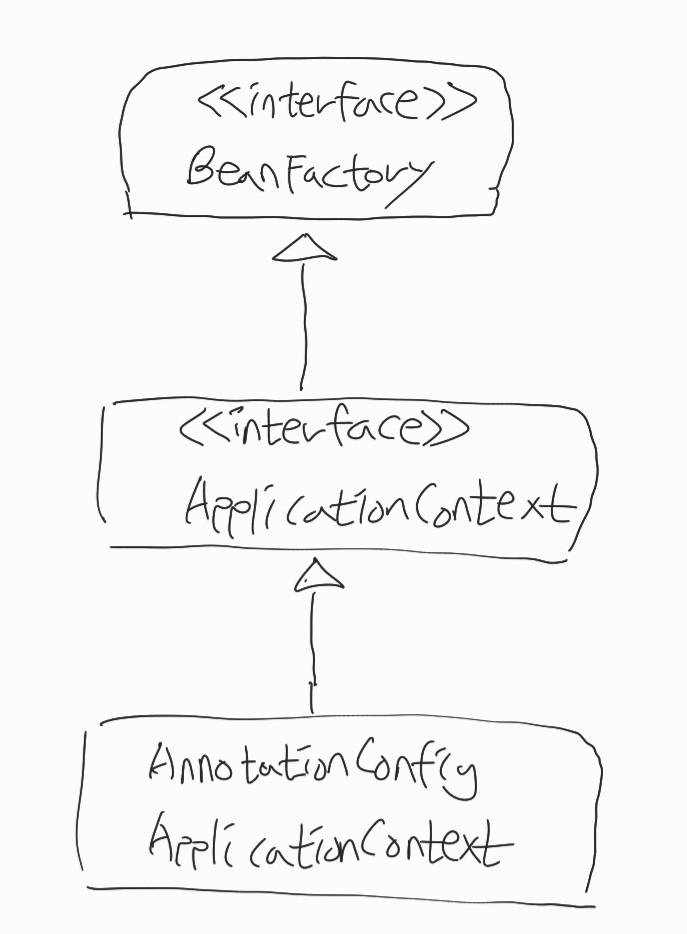 <<interface>>
BeanFactory
<<interface>>
ApplicationContext
AnnotationConfig
ApplicationContext